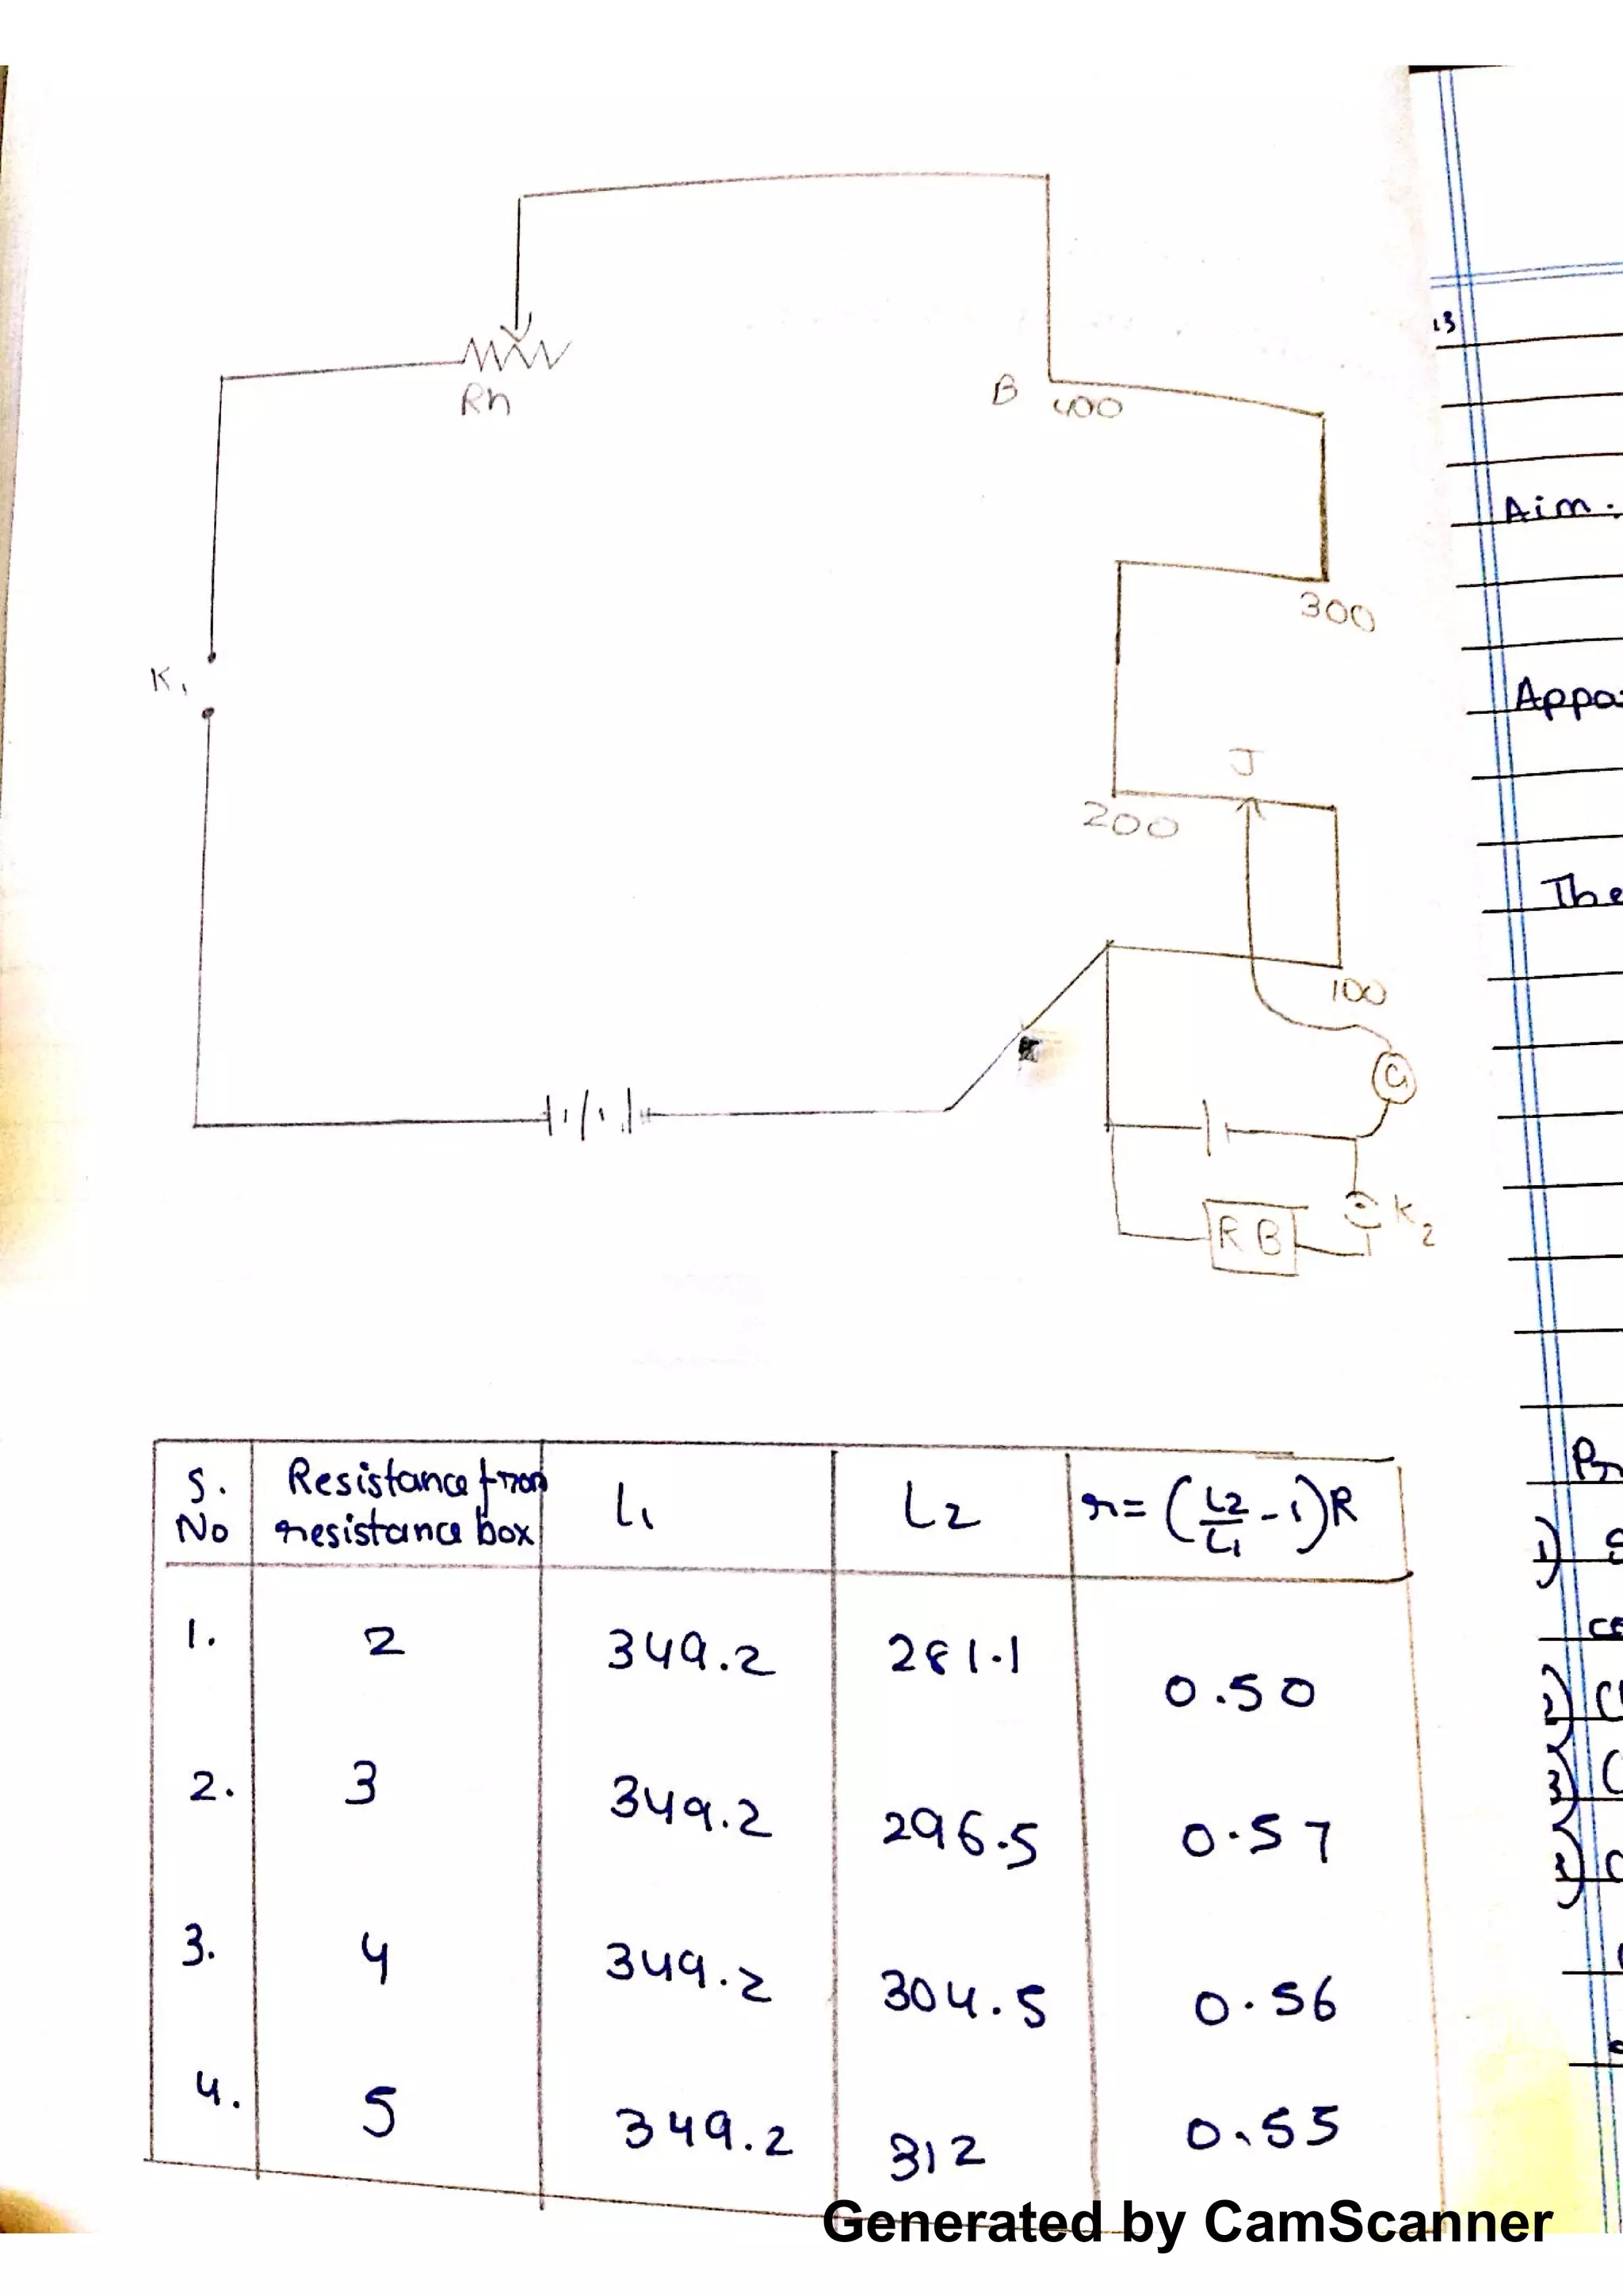 Rh
B 400
300
K1
J
200
100
G
K2
RB
S. No
Resistance from resistance box
L1
L2
r = (L2/L1 - 1)R
1. 2 349.2 281.1 0.50
2. 3 349.2 296.5 0.57
3. 4 349.2 304.5 0.56
4. 5 349.2 312 0.55
13
Aim.
Appa
The
Pr
1) S
ce
2) C
3) C
Generated by CamScanner